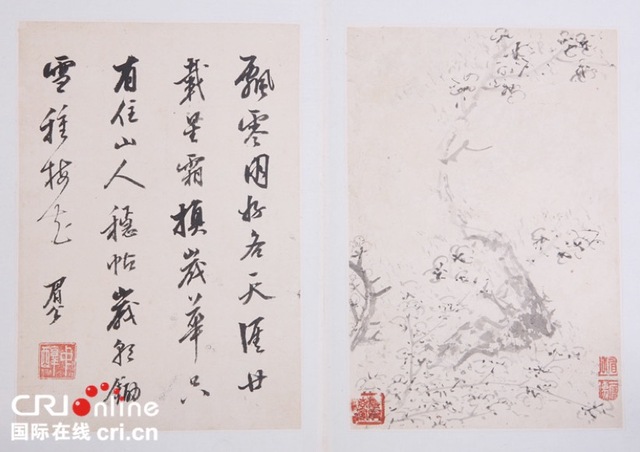 飄零朋好各天涯廿
載星霜損歲華只
有住山人穩帖歲朝鋤
雪種梅花
CRI online
国际在线 cri.cn